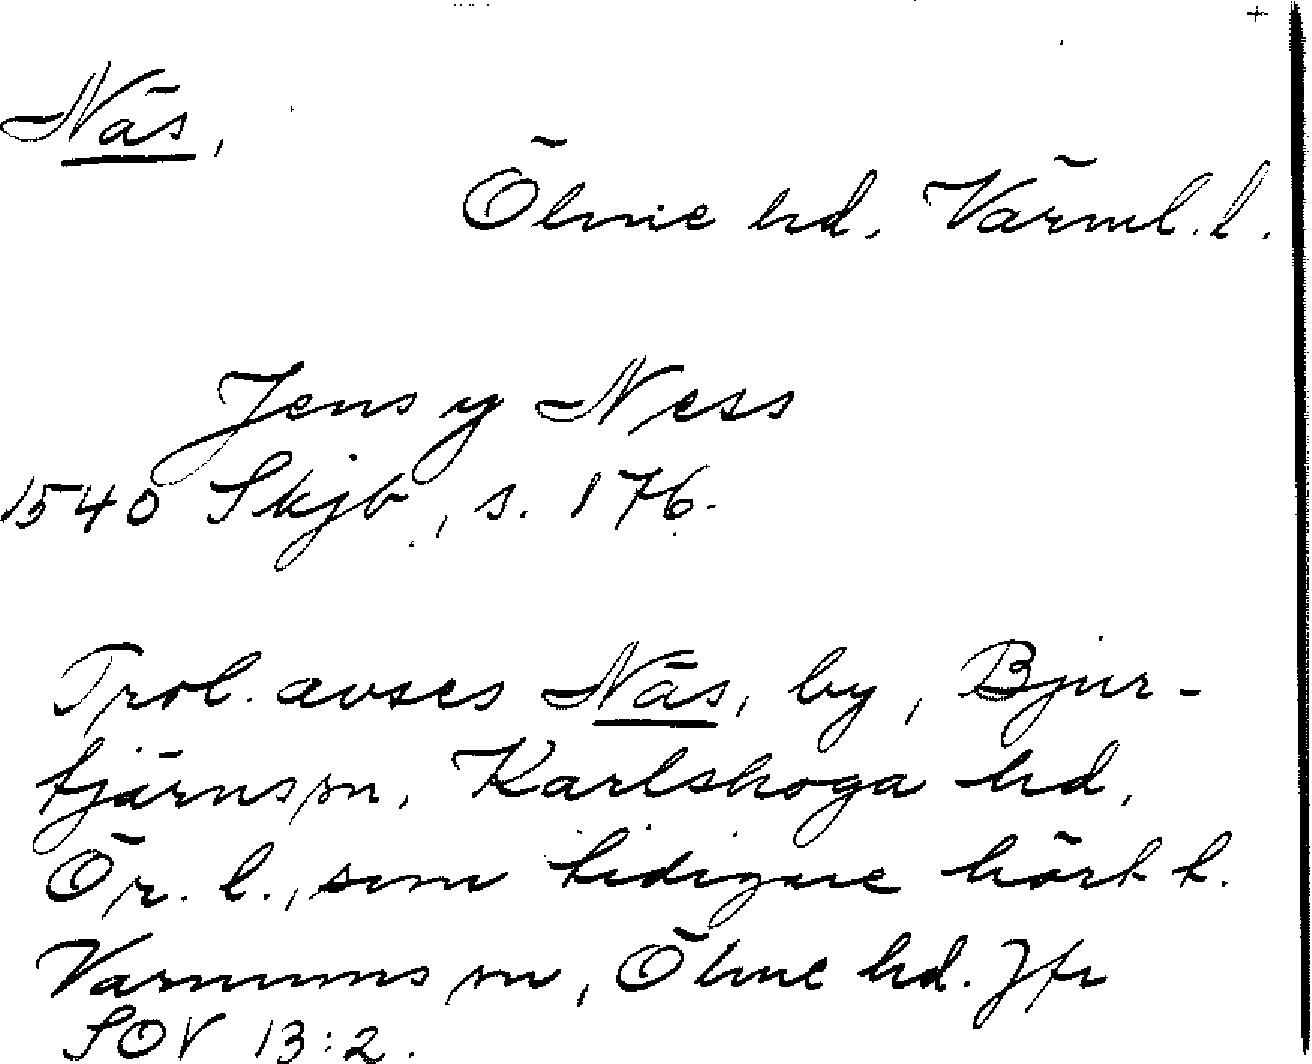 Näs,
Ölme hd, Värml. l.
Jens y Ness
1540 Skjb, s. 176.
Trol. avses Näs, by, Bjur-
tjärns sn, Karlskoga hd,
Ör. l., som tidigare hört t.
Varnums sn, Ölme hd. Jfr
SOV 13:2.